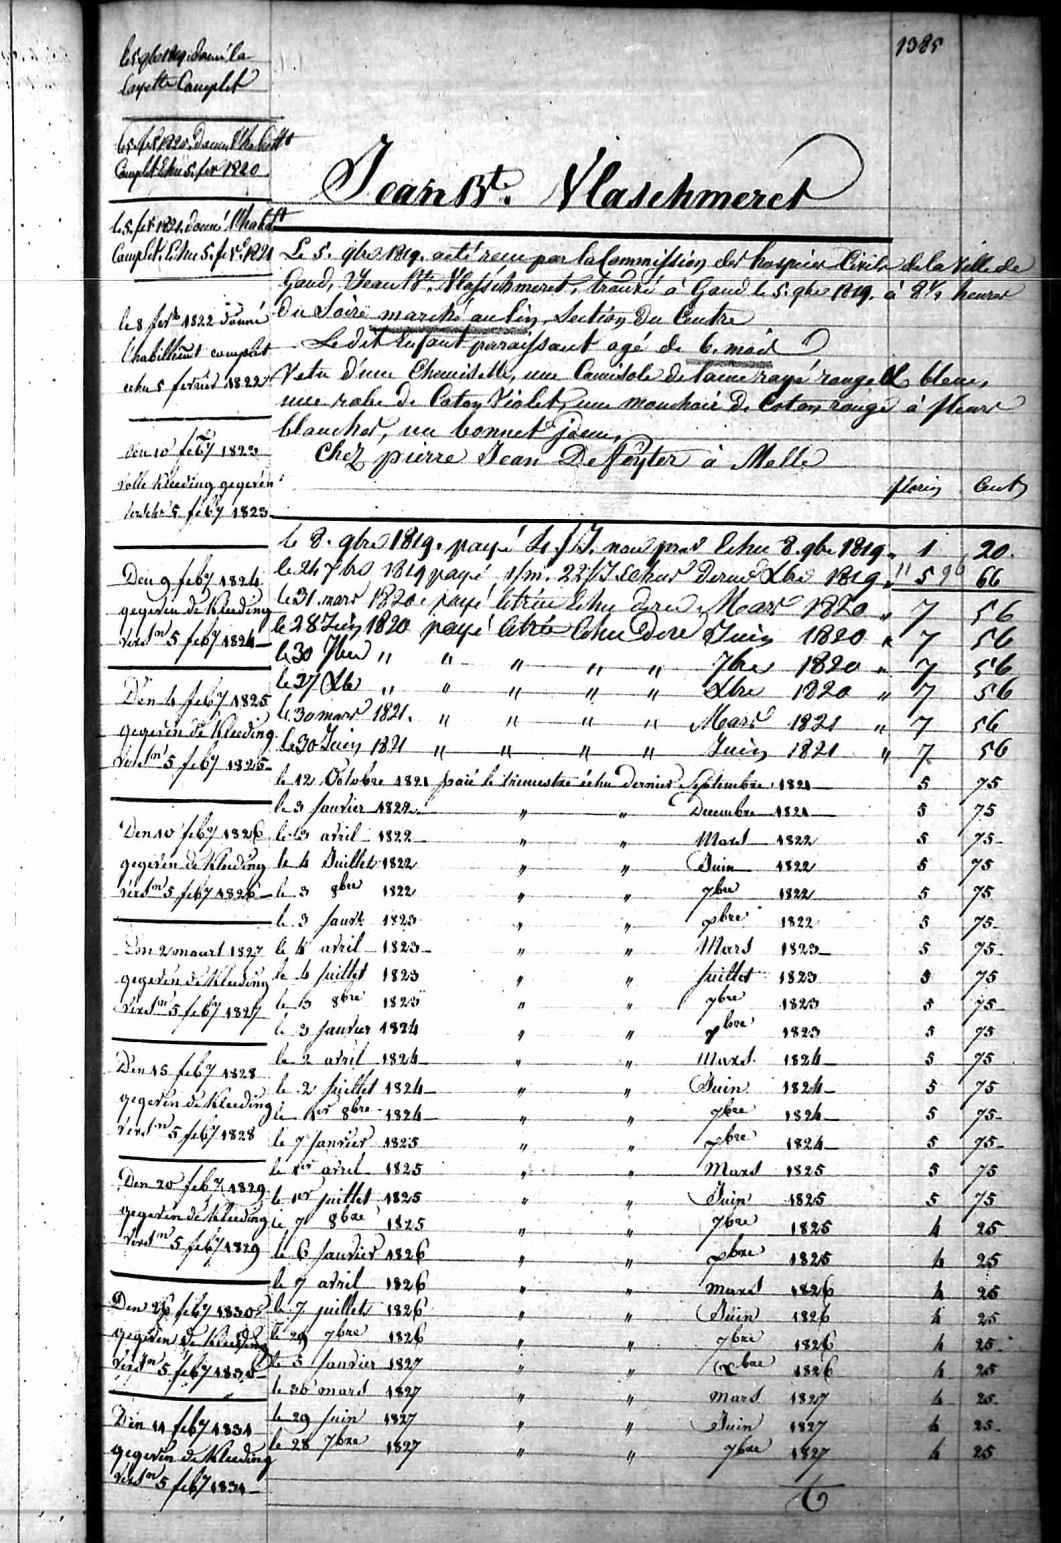 1385
le 5 9bre 1819 donné la
Layette Complet
le 5 fev 1820. donné l'habillt
Complet Echu 5. fev 1820
le 5. fevr 1821. donné l'habillt
Complet. Echu 5. fevr 1821
le 8 fevr 1822 donné
l'habillement complet
echu 5 fevrier 1822
den 10 feby 1823
volle Kleeding gegeven
verschs 5 feby 1823
Den 9 feby 1824
gegeven de Kleeding
versn 5 feby 1824
Den 4 feby 1825
gegeven de Kleeding
versn 5 feby 1825
Den 10 feby 1826
gegeven de Kleeding
versn 5 feby 1826
Den 2 maart 1827
gegeven de Kleeding
versn 5 feby 1827
Den 15 feby 1828
gegeven de Kleeding
versn 5 feby 1828
Den 20 feby 1829
gegeven de Kleeding
versn 5 feby 1829
Den 26 feby 1830
gegeven de Kleeding
versn 5 feby 1830
Den 11 feby 1831
gegeven de Kleeding
versn 5 feby 1831
Jean Bte. Vlaschmeret
Le 5. 9bre 1819. a été reçu par la Commission des hospices Civils de la Ville de
Gand, Jean Bte Vlaschmeret, trouvé à Gand le 5. 9bre 1819. à 8 1/2 heures
du Soire marché au lin, Section du Centre
Le dit Enfant paraissant agé de 6. mois
Vetu d'une Chemisette, une Camisole de laine rayé rouge et bleue,
une robe de Coton Violet, une mouchoir de Coton rouge à fleurs
blanches, un bonnet jaune,
Chez pierre Jean De feyter à Melle
florins Cents
le 8. 9bre 1819. payé 4. f.J. nour prov Echu 8. 9bre 1819 " 1 20.
le 24 Xbre 1819 payé 1/m. 22/J. Echus dernr Xbre 1819 " 5 66
le 31. mars 1820. payé letrée Echu dere Mars 1820 " 7 56
le 28 Juin 1820 payé letrée Echu dere Juin 1820 " 7 56
le 30 7bre " " " " " 7bre 1820 " 7 56
le 27 Xbre " " " " " Xbre 1820 " 7 56
le 30 mars 1821. " " " " Mars 1821 " 7 56
le 30 Juin 1821 " " " " Juin 1821 " 7 56
le 12 Octobre 1821 paié le trimestre échu dernier Septembre 1821 5 75
le 3 Janvier 1822. " " Decembre 1821 5 75
le 3 avril 1822 " " Mars 1822 5 75
le 4 Juillet 1822 " " Juin 1822 5 75
le 3 8bre 1822 " " 7bre 1822 5 75
le 3 Janvr 1823 " " xbre 1822 5 75
le 4 avril 1823 " " Mars 1823 5 75
le 4 Juillet 1823 " " Juillet 1823 5 75
le 3 8bre 1823 " " 7bre 1823 5 75
le 3 Janvier 1824 " " xbre 1823 5 75
le 2 avril 1824 " " Mars 1824 5 75
le 2 Juillet 1824 " " Juin 1824 5 75
le 1er 8bre 1824 " " 7bre 1824 5 75
le 7 Janvier 1825 " " xbre 1824 5 75
le 1er avril 1825 " " Mars 1825 5 75
le 1er Juillet 1825 " " Juin 1825 5 75
le 7 8bre 1825 " " 7bre 1825 4 25
le 6 Janvier 1826 " " xbre 1825 4 25
le 7 avril 1826 " " mars 1826 4 25
le 7 juillet 1826 " " Juin 1826 4 25
le 29 7bre 1826 " " 7bre 1826 4 25
le 5 Janvier 1827 " " xbre 1826 4 25
le 30 mars 1827 " " mars 1827 4 25
le 29 Juin 1827 " " Juin 1827 4 25
le 28 7bre 1827 " " 7bre 1827 4 25